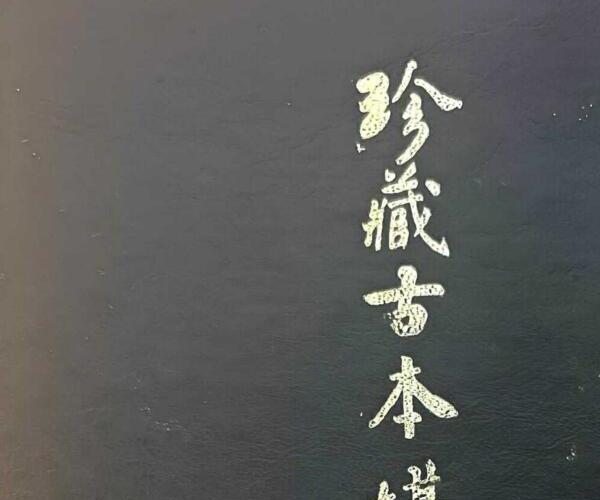 珍藏古本